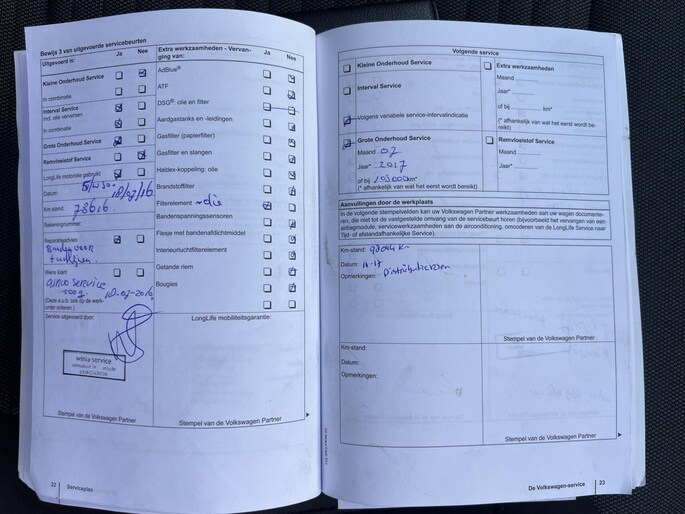 Bewijs 3 van uitgevoerde servicebeurten
Uitgevoerd is: Ja Nee
Kleine Onderhoud Service
In combinatie
Interval Service
incl. olie verversen
In combinatie
Grote Onderhoud Service
Remvloeistof Service
LongLife motorolie gebruikt
Datum 18/07/16
Km-stand: 78616.
Rekeningnummer:
Reparatieadvies
Wens klant
Service
10-07-2016.
(Deze a.u.b. ook op de werk-
order noteren.)
Service uitgevoerd door:
Stempel van de Volkswagen Partner
Extra werkzaamheden - Vervan-
ging van: Ja Nee
AdBlue®
ATF
DSG®: olie en filter
Aardgastanks en -leidingen
Gasfilter (papierfilter)
Gasfilter en slangen
Haldex-koppeling: olie
Brandstoffilter
Filterelement - olie
Bandenspanningssensoren
Flesje met bandenafdichtmiddel
Interieurluchtfilterelement
Getande riem
Bougies
LongLife mobiliteitsgarantie:
Stempel van de Volkswagen Partner
22 Serviceplan
Volgende service
Kleine Onderhoud Service
Interval Service
Volgens variabele service-intervalindicatie
Grote Onderhoud Service
Maand 07
Jaar* 2017
of bij 103000 km*
(* afhankelijk van wat het eerst wordt bereikt)
Extra werkzaamheden
Maand
Jaar*
of bij km*
(* afhankelijk van wat het eerst wordt be-
reikt)
Remvloeistof Service
Maand
Jaar*
Aanvullingen door de werkplaats
In de volgende stempelvelden kan uw Volkswagen Partner werkzaamheden aan uw wagen documente-
ren, die niet tot de vastgestelde omvang van de servicebeurt horen (bijvoorbeeld het vervangen van een
airbagmodule, servicewerkzaamheden aan de airconditioning, omcoderen van de LongLife Service naar
Tijd- of afstandafhankelijke Service).
Km-stand:
Datum:
Opmerkingen: Distributieriem
Stempel van de Volkswagen Partner
Km-stand:
Datum:
Opmerkingen:
Stempel van de Volkswagen Partner
De Volkswagen-service 23